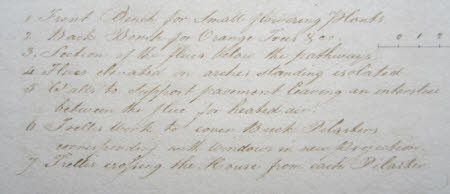 1 Front Bench for Small flowering Plants
2 Back Bench for Orange Trees &cc.
0 1 2
3 Section of the flues below the pathways
4 Flues elevated on arches standing isolated
5 Walls to support pavement leaving an interstice
between the flue for heated air
6 Trellis Work to cover Back Pilasters
corresponding with windows in new Projection
7 Trellis crossing the House from each Pilaster